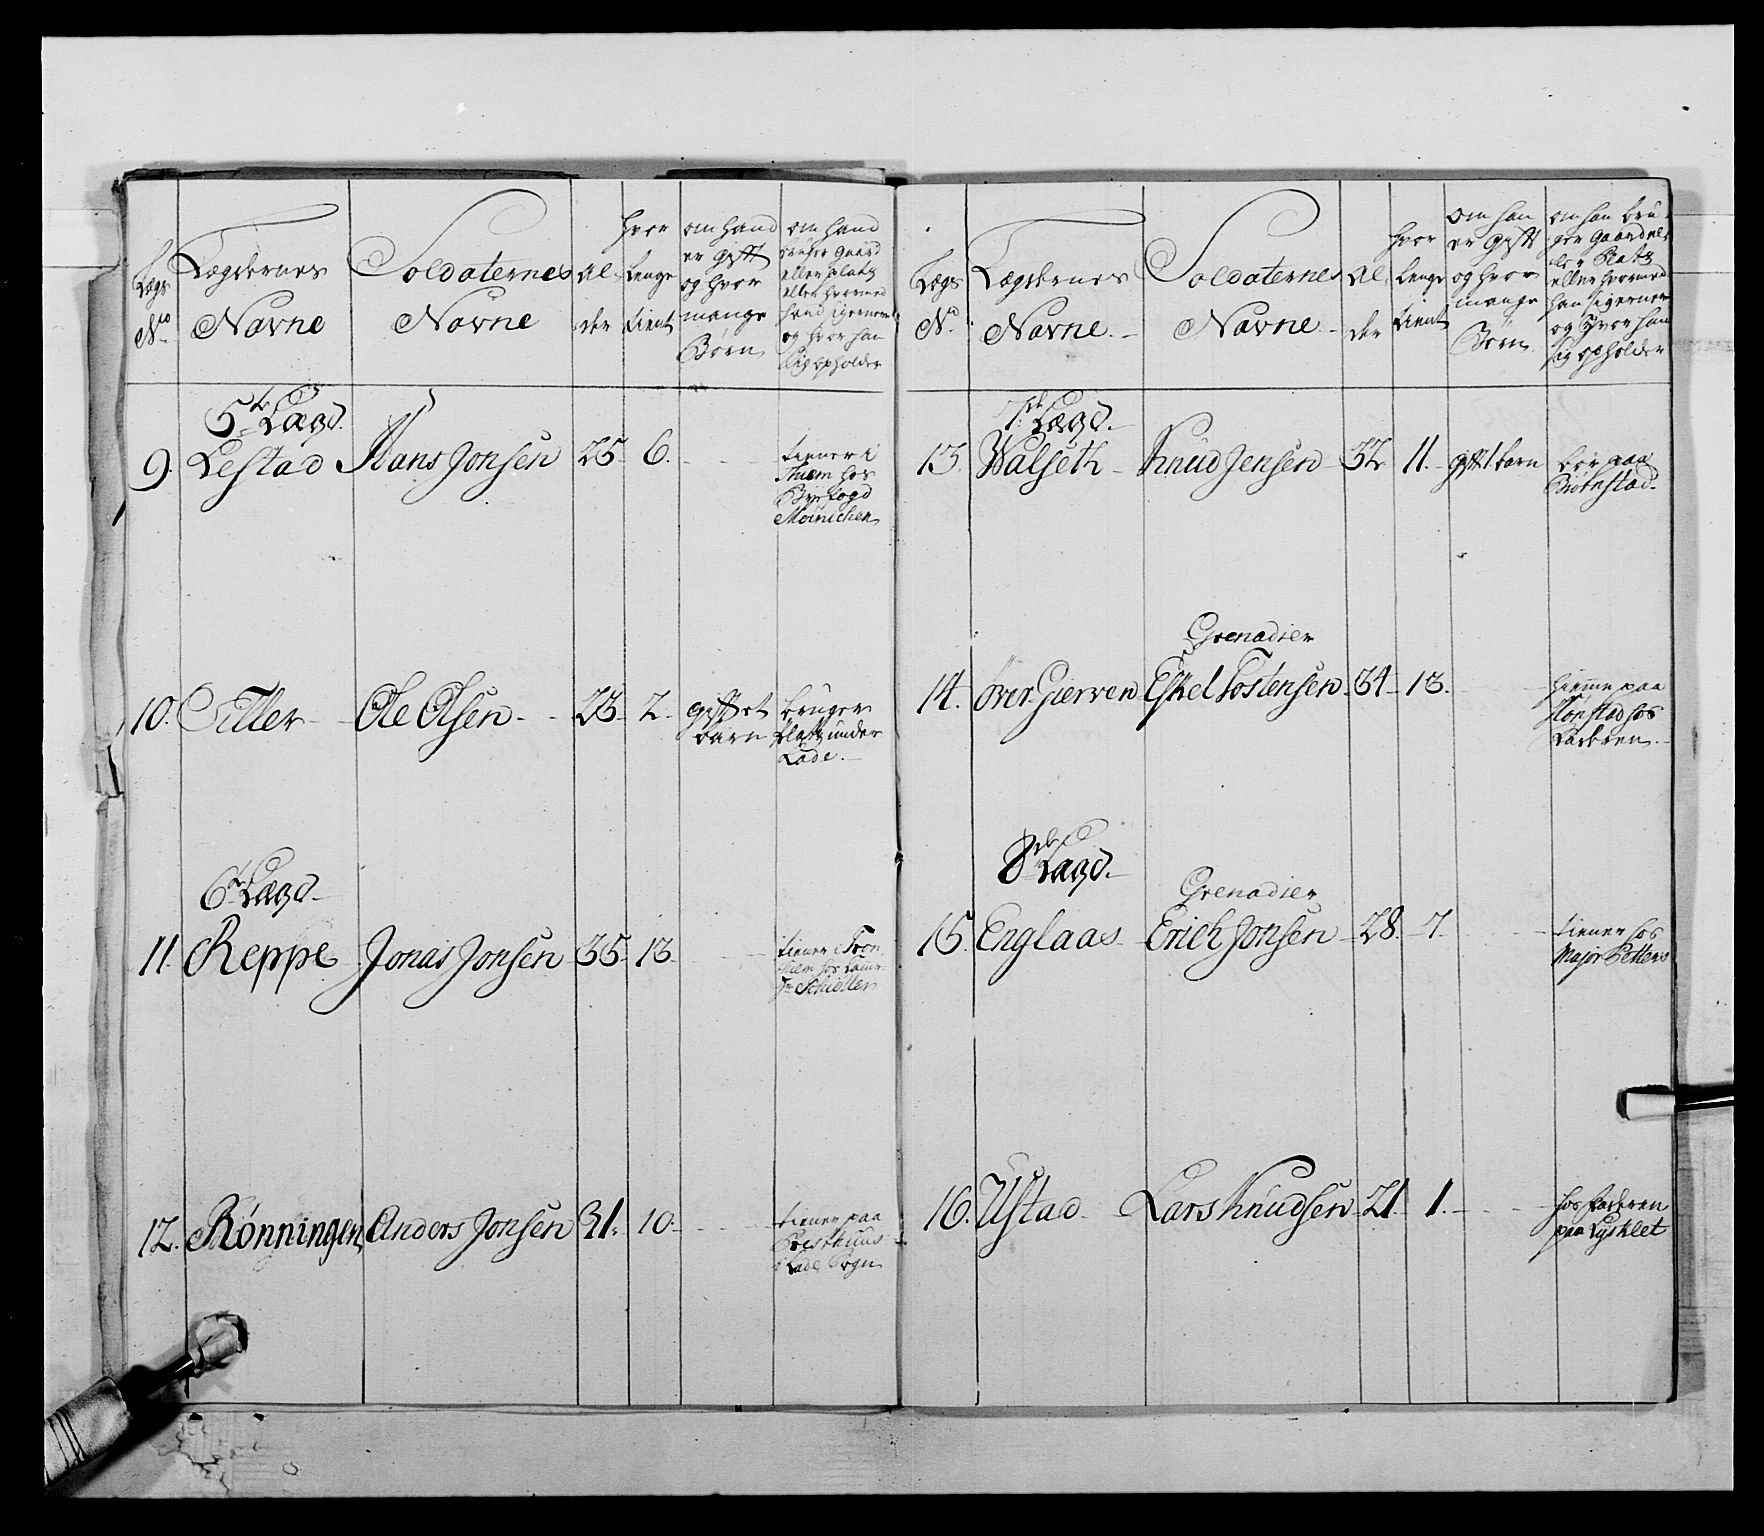 Lægs No
Lægdernes Navne
Soldaternes Navne
Al-der
hvor lenge tient
om hand er gift og hvor mange Børn
om hand bruger gaard eller platz eller hvormed hand sig ernerer og hvor han sig opholder
5te Lægd.
9. Lestad Hans Jonsen 25 6.
tiener i
Byefogd
Møinichen
10. Tiller Ole Olsen 23 2. giftet
barn
bruger
platz under
Lade.
6te Lægd
11. Reppe Jonas Jonsen 35 13
tiener i Tron
hiem hos
Schiøller
12. Rønningen Anders Jonsen 31. 10.
tiener paa
Presthuus
i Lade Sogn
Lægs No
Lægdernes Navne.
Soldaternes Navne
Al der
hvor lenge tient
om han er gift og hvor mange Børn
om han bruger gaard eller Platz eller hvormed han sig ernerer og hvor han sig opholder
7de Lægd.
13. Walseth Knud Jensen 32 11. gift 1 barn
boer paa
Biørnstad.
Grenadier
14. Over Gierven Eskel Tostensen 34 13.
hiemme paa
hos
Faderen.
8de Lægd.
Grenadier
15. Englaas Erich Jonsen 28. 7.
tiener hos
Major Petters
16. Ustad Lars Knudsen 21. 1.
hos Faderen
paa Lysklet